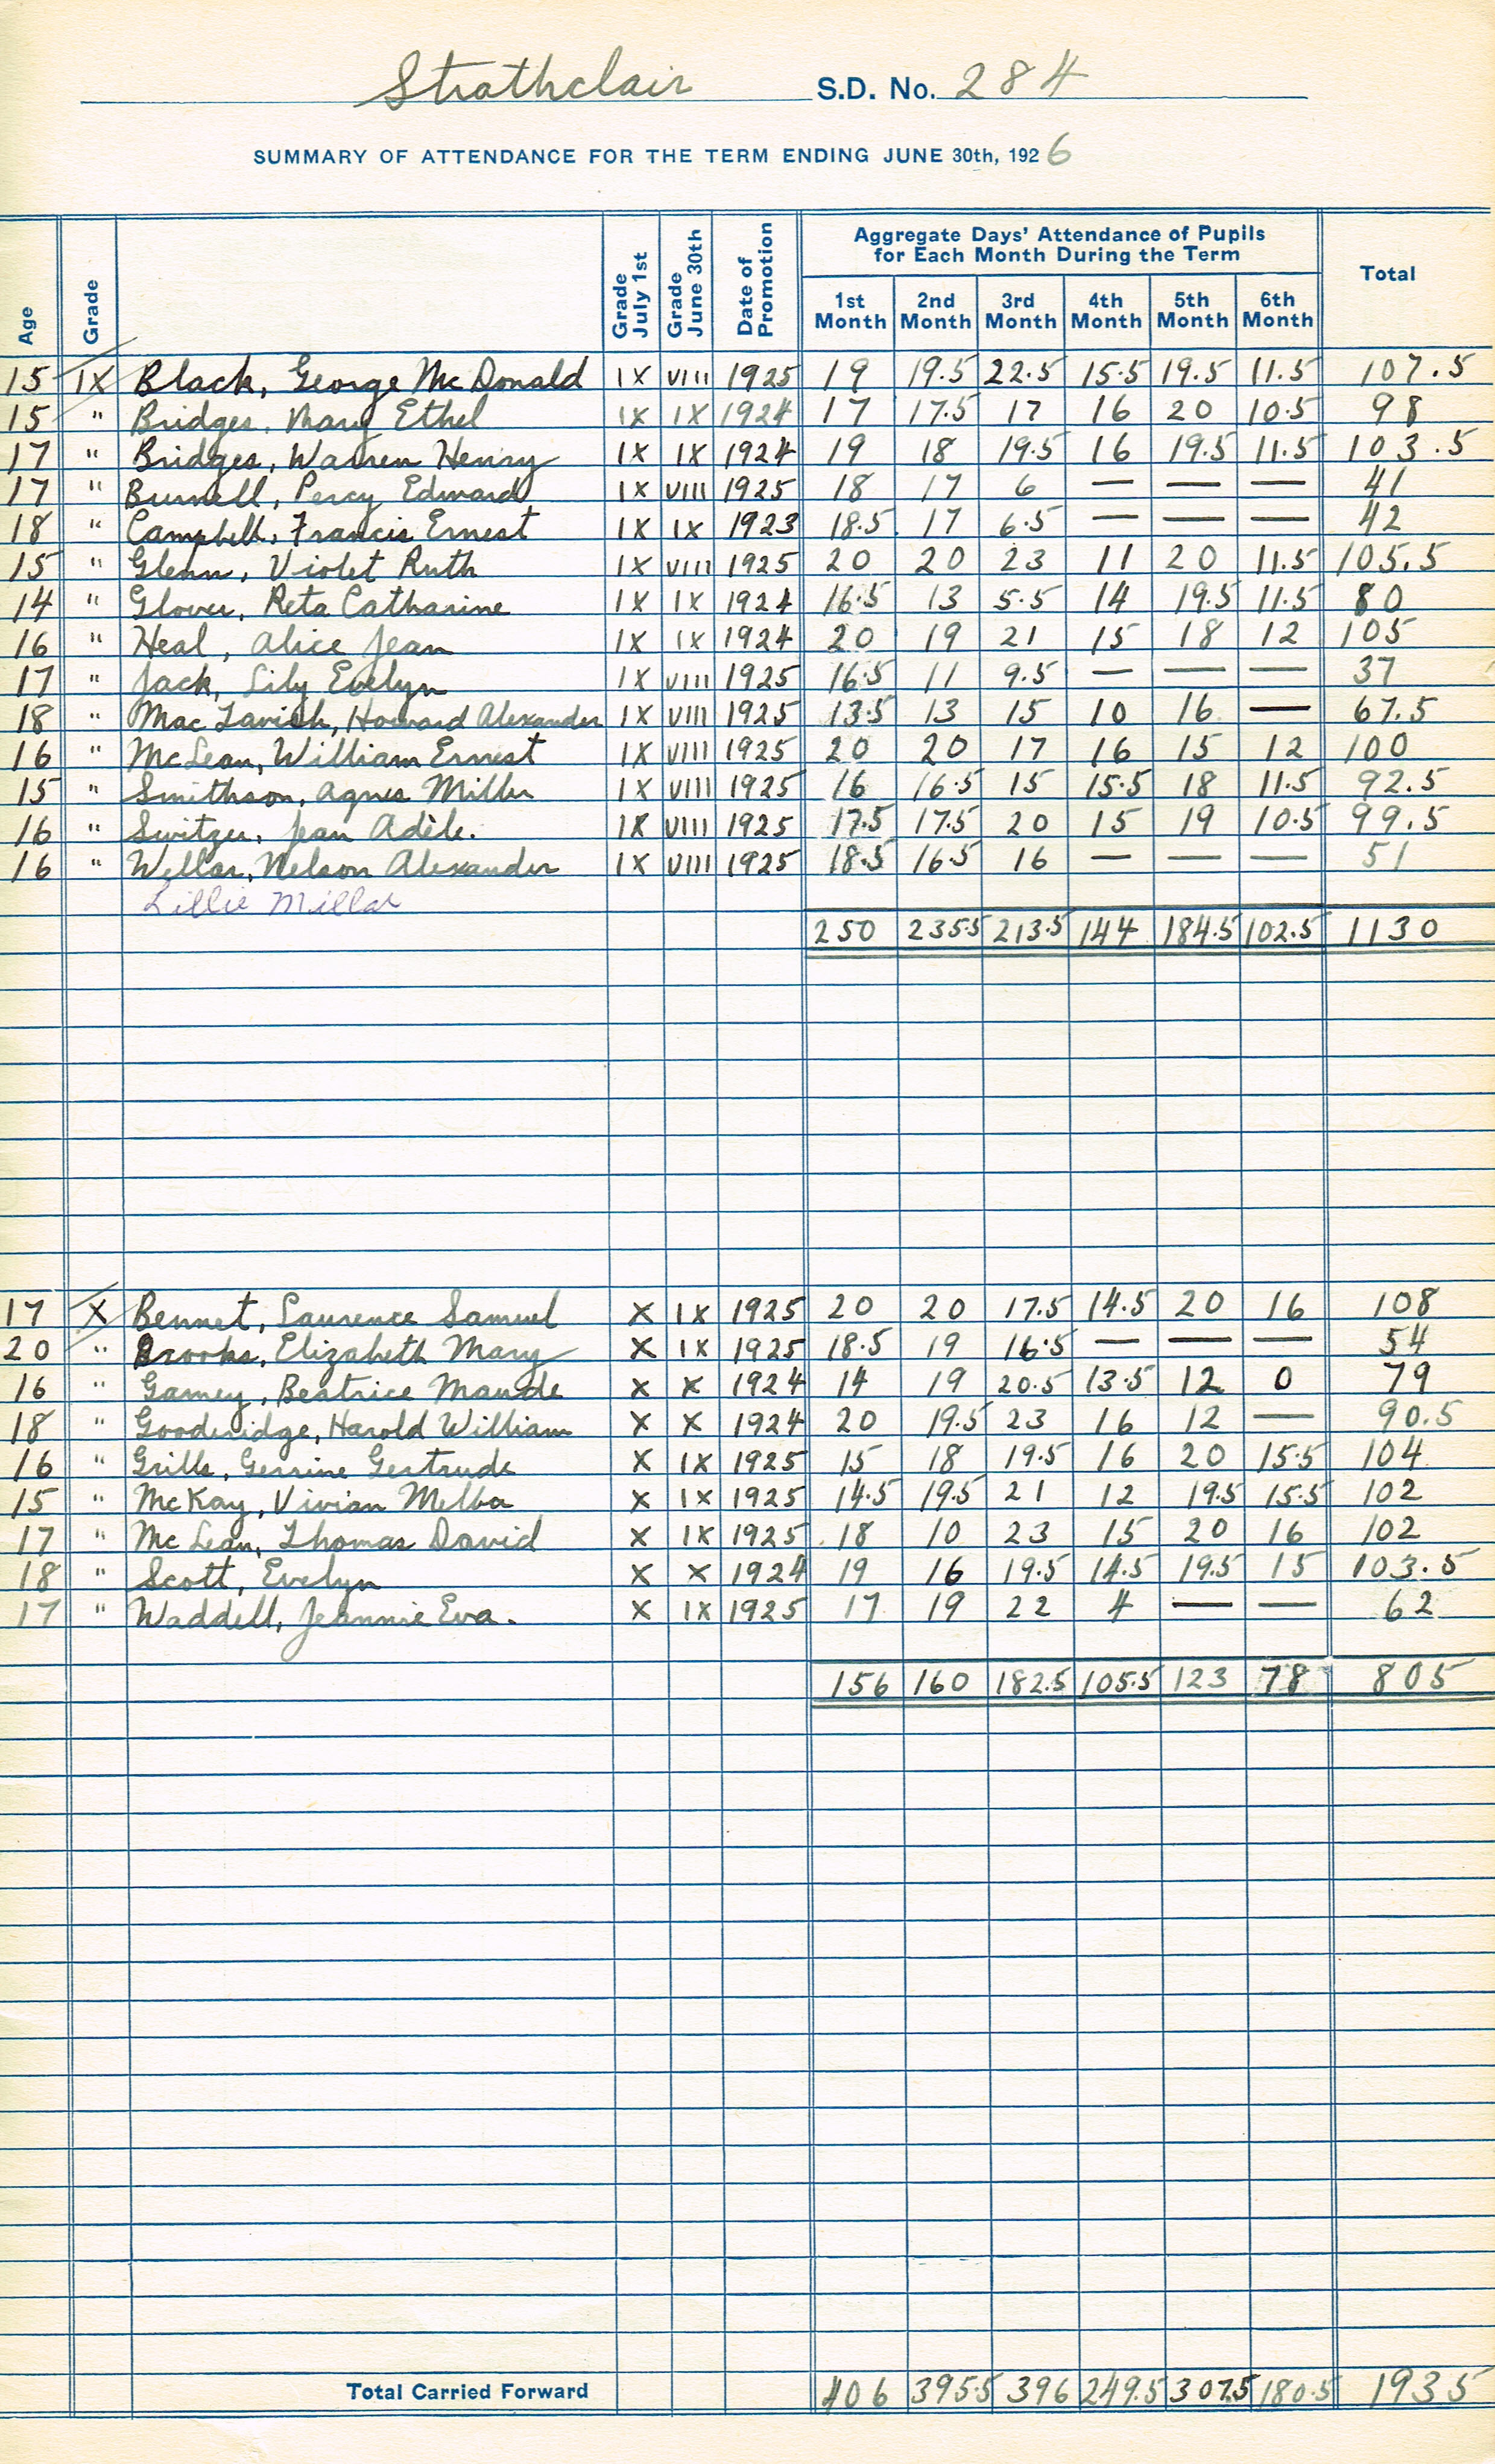 Strathclair S.D. No. 284
SUMMARY OF ATTENDANCE FOR THE TERM ENDING JUNE 30th, 1926
Age Grade Grade July 1st Grade June 30th Date of Promotion Aggregate Days' Attendance of Pupils for Each Month During the Term Total
1st Month 2nd Month 3rd Month 4th Month 5th Month 6th Month
15 IX Black, George McDonald IX VIII 1925 19 19.5 22.5 15.5 19.5 11.5 107.5
15 " Bridges, Mary Ethel IX IX 1924 17 17.5 17 16 20 10.5 98
17 " Bridges, Warren Henry IX IX 1924 19 18 19.5 16 19.5 11.5 103.5
17 " Burnell, Percy Edward IX VIII 1925 18 17 6 — — — 41
18 " Campbell, Francis Ernest IX IX 1923 18.5 17 6.5 — — — 42
15 " Glenn, Violet Ruth IX VIII 1925 20 20 23 11 20 11.5 105.5
14 " Glover, Reta Catharine IX IX 1924 16.5 13 5.5 14 19.5 11.5 80
16 " Heal, Alice Jean IX IX 1924 20 19 21 15 18 12 105
17 " Jack, Lily Evelyn IX VIII 1925 16.5 11 9.5 — — — 37
18 " MacTavish, Howard Alexander IX VIII 1925 13.5 13 15 10 16 — 67.5
16 " McLean, William Ernest IX VIII 1925 20 20 17 16 15 12 100
15 " Smithson, Agnes Miller IX VIII 1925 16 16.5 15 15.5 18 11.5 92.5
16 " Switzer, Jean Adèle. IX VIII 1925 17.5 17.5 20 15 19 10.5 99.5
16 " Wellar, Nelson Alexander IX VIII 1925 18.5 16.5 16 — — — 51
Lillie Millar
250 235.5 213.5 144 184.5 102.5 1130
17 X Bennet, Laurence Samuel X IX 1925 20 20 17.5 14.5 20 16 108
20 " Brooks, Elizabeth Mary X IX 1925 18.5 19 16.5 — — — 54
16 " Gamey, Beatrice Maude X X 1924 14 19 20.5 13.5 12 0 79
18 " Goodridge, Harold William X X 1924 20 19.5 23 16 12 — 90.5
16 " Grills, Gerrine Gertrude X IX 1925 15 18 19.5 16 20 15.5 104
15 " McKay, Vivian Melba X IX 1925 14.5 19.5 21 12 19.5 15.5 102
17 " McLean, Thomas David X IX 1925 18 10 23 15 20 16 102
18 " Scott, Evelyn X X 1924 19 16 19.5 14.5 19.5 15 103.5
17 " Waddell, Jeannie Eva. X IX 1925 17 19 22 4 — — 62
156 160 182.5 105.5 123 78 805
Total Carried Forward 406 395.5 396 249.5 307.5 180.5 1935